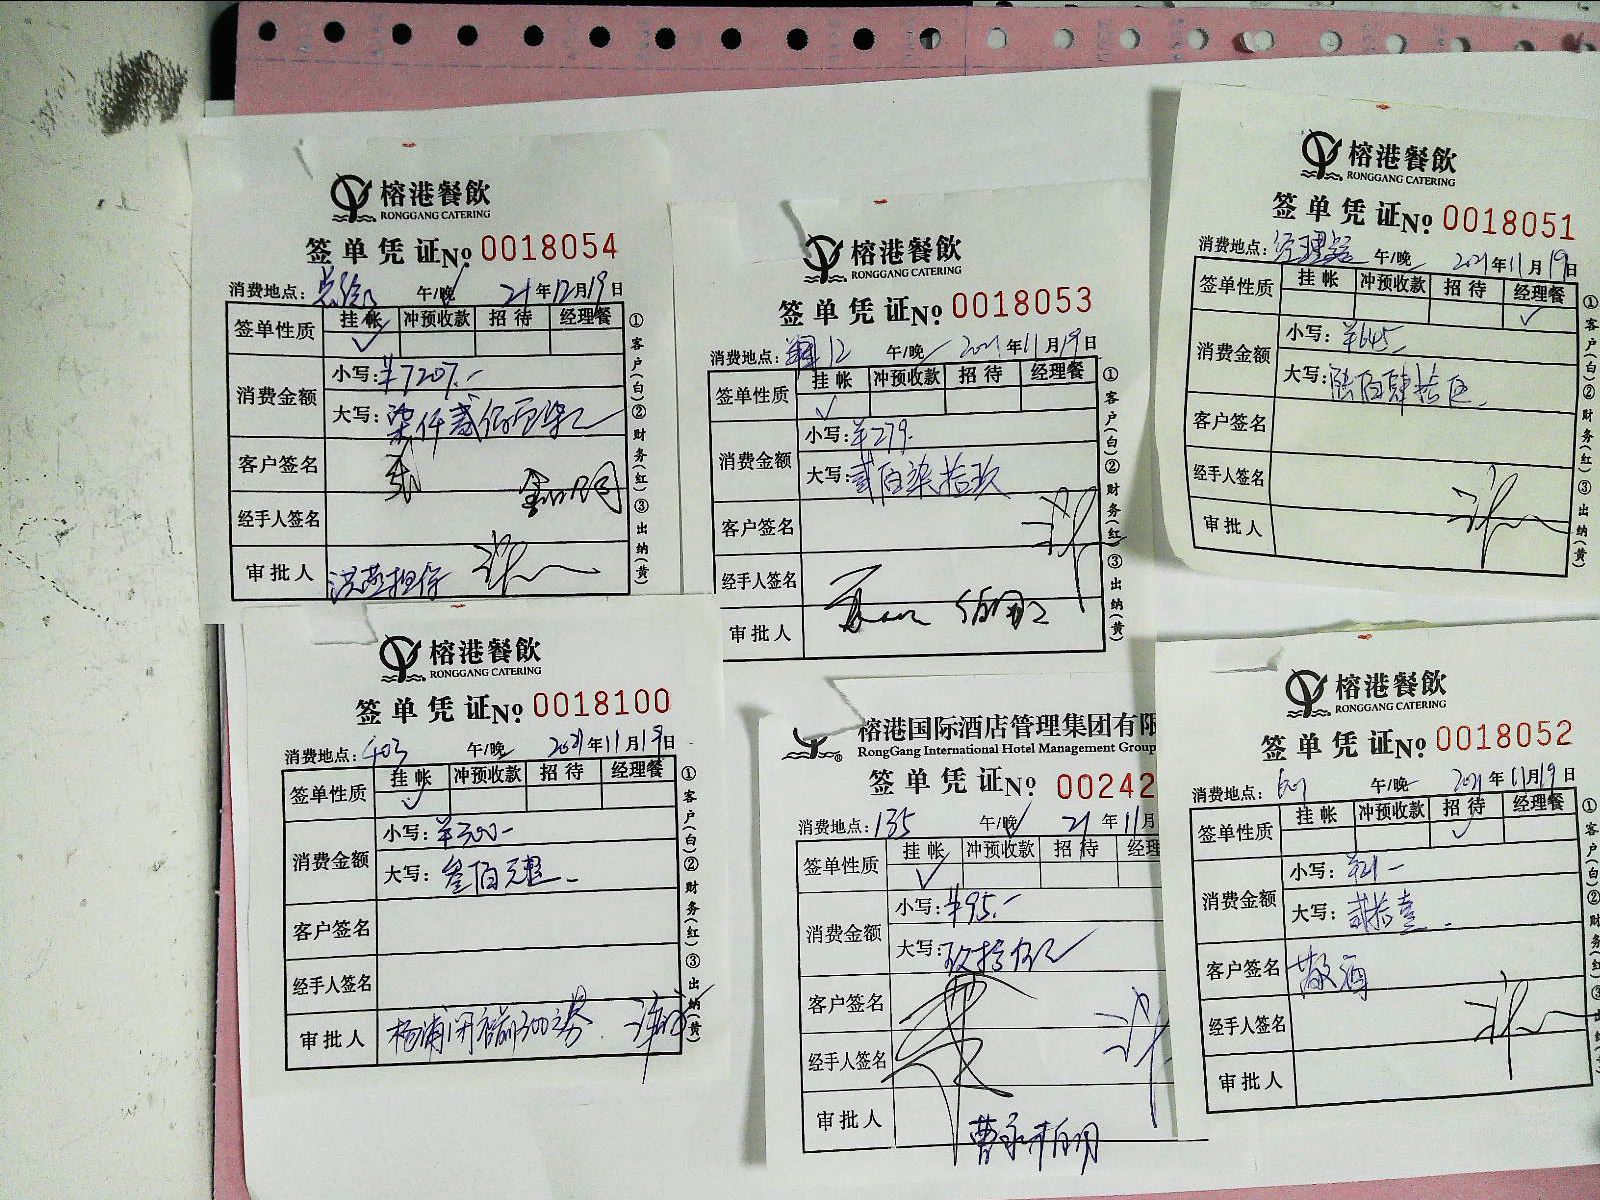 榕港餐飲
RONGGANG CATERING
签单凭证No 0018054
消费地点: 午/晚 21年12月19日
签单性质 挂帐 冲预收款 招待 经理餐
消费金额 小写:¥7207.-
大写:柒仟贰佰零柒元
客户签名
经手人签名
审批人 洪燕担保
①客户(白)②财务(红)③出纳(黄)
榕港餐飲
RONGGANG CATERING
签单凭证No 0018053
消费地点: 12 午/晚 2021年11月19日
签单性质 挂帐 冲预收款 招待 经理餐
消费金额 小写:¥279.
大写:贰佰柒拾玖
客户签名
经手人签名
审批人
①客户(白)②财务(红)③出纳(黄)
榕港餐飲
RONGGANG CATERING
签单凭证No 0018051
消费地点:经理餐 午/晚 2021年11月19日
签单性质 挂帐 冲预收款 招待 经理餐
消费金额 小写:¥645-
大写:陆佰肆拾伍
客户签名
经手人签名
审批人
①客户(白)②财务(红)③出纳(黄)
榕港餐飲
RONGGANG CATERING
签单凭证No 0018100
消费地点:403 午/晚 2021年11月19日
签单性质 挂帐 冲预收款 招待 经理餐
消费金额 小写:¥300-
大写:叁佰元整
客户签名
经手人签名
审批人
①客户(白)②财务(红)③出纳(黄)
榕港国际酒店管理集团有限
RongGang International Hotel Management Group
签单凭证No 00242
消费地点:135 午/晚 21年11月
签单性质 挂帐 冲预收款 招待 经理
消费金额 小写:¥95.-
大写:玖拾伍元
客户签名
经手人签名
审批人
榕港餐飲
RONGGANG CATERING
签单凭证No 0018052
消费地点: 午/晚 2021年11月19日
签单性质 挂帐 冲预收款 招待 经理餐
消费金额 小写:¥21-
大写:贰拾壹
客户签名 敬酒
经手人签名
审批人
①客户(白)②财务(红)③